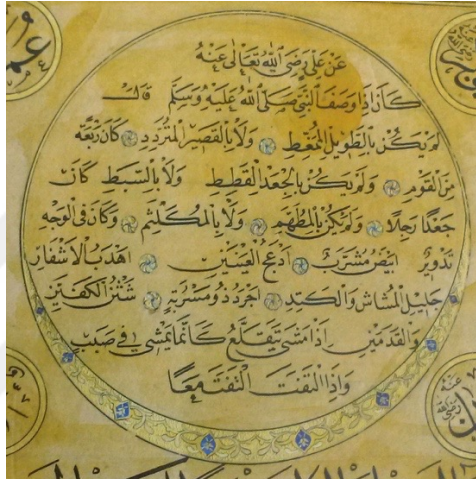 عَنْ عَلِيٍّ رَضِيَ اللهُ تَعَالٰى عَنْهُ
كَانَ اِذَا وَصَفَ النَّبِيَّ صَلَّى اللهُ عَلَيْهِ وَسَلَّمَ قَالَ
لَمْ يَكُنْ بِالطَّوِيلِ الْمُمَّغِطِ وَلَا بِالْقَصِيرِ الْمُتَرَدِّدِ وَكَانَ رَبْعَةً
مِنَ الْقَوْمِ وَلَمْ يَكُنْ بِالْجَعْدِ الْقَطِطِ وَلَا بِالسَّبِطِ كَانَ
جَعْدًا رَجِلًا وَلَمْ يَكُنْ بِالْمُطَهَّمِ وَلَا بِالْمُكَلْثَمِ وَكَانَ فِي الْوَجْهِ
تَدْوِيرٌ اَبْيَضُ مُشْرَبٌ اَدْعَجُ الْعَيْنَيْنِ اَهْدَبُ الْاَشْفَارِ
جَلِيلُ الْمُشَاشِ وَالْكَتَدِ اَجْرَدُ ذُو مَسْرُبَةٍ شَثْنُ الْكَفَّيْنِ
وَالْقَدَمَيْنِ اِذَا مَشٰى يَتَقَلَّعُ كَاَنَّمَا يَمْشِي فِي صَبَبٍ
وَاِذَا الْتَفَتَ الْتَفَتَ مَعًا